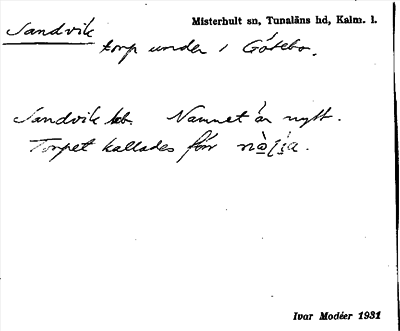 Sandvik
Misterhult sn, Tunaläns hd, Kalm. l.
torp under 1 Götebo.
Sandvik tb. Namnet är nytt.
Torpet kallades förr
Ivar Modéer 1931